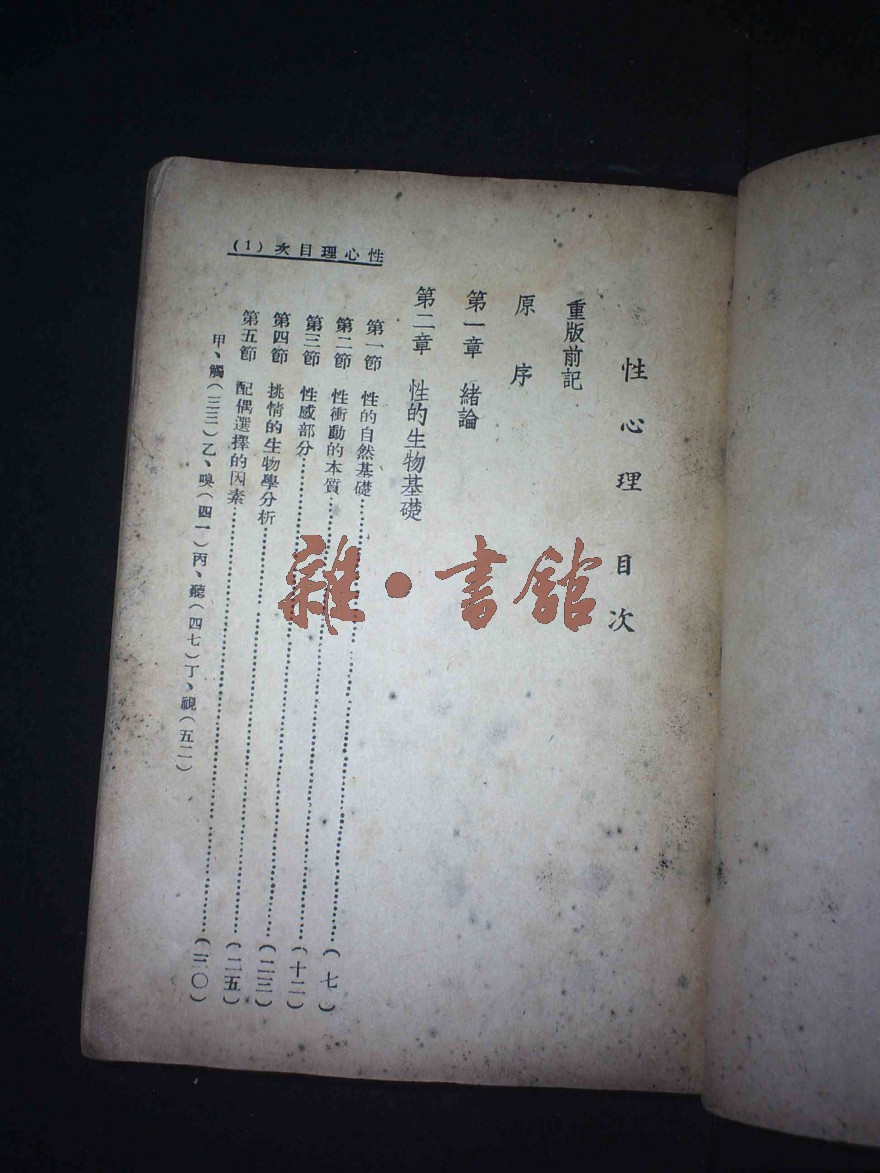 性心理目次(1)
性心理目次
重版前記
原序
第一章 緒論
第二章 性的生物基礎
第一節 性的自然基礎……………………(七)
第二節 性衝動的本質……………………(十二)
第三節 性感部分……………………(二三)
第四節 挑情的生物學分析……………………(二五)
第五節 配偶選擇的因素……………………(三〇)
甲、觸(三三)乙、嗅(四一)丙、聽(四七)丁、視(五二)
雜·書館